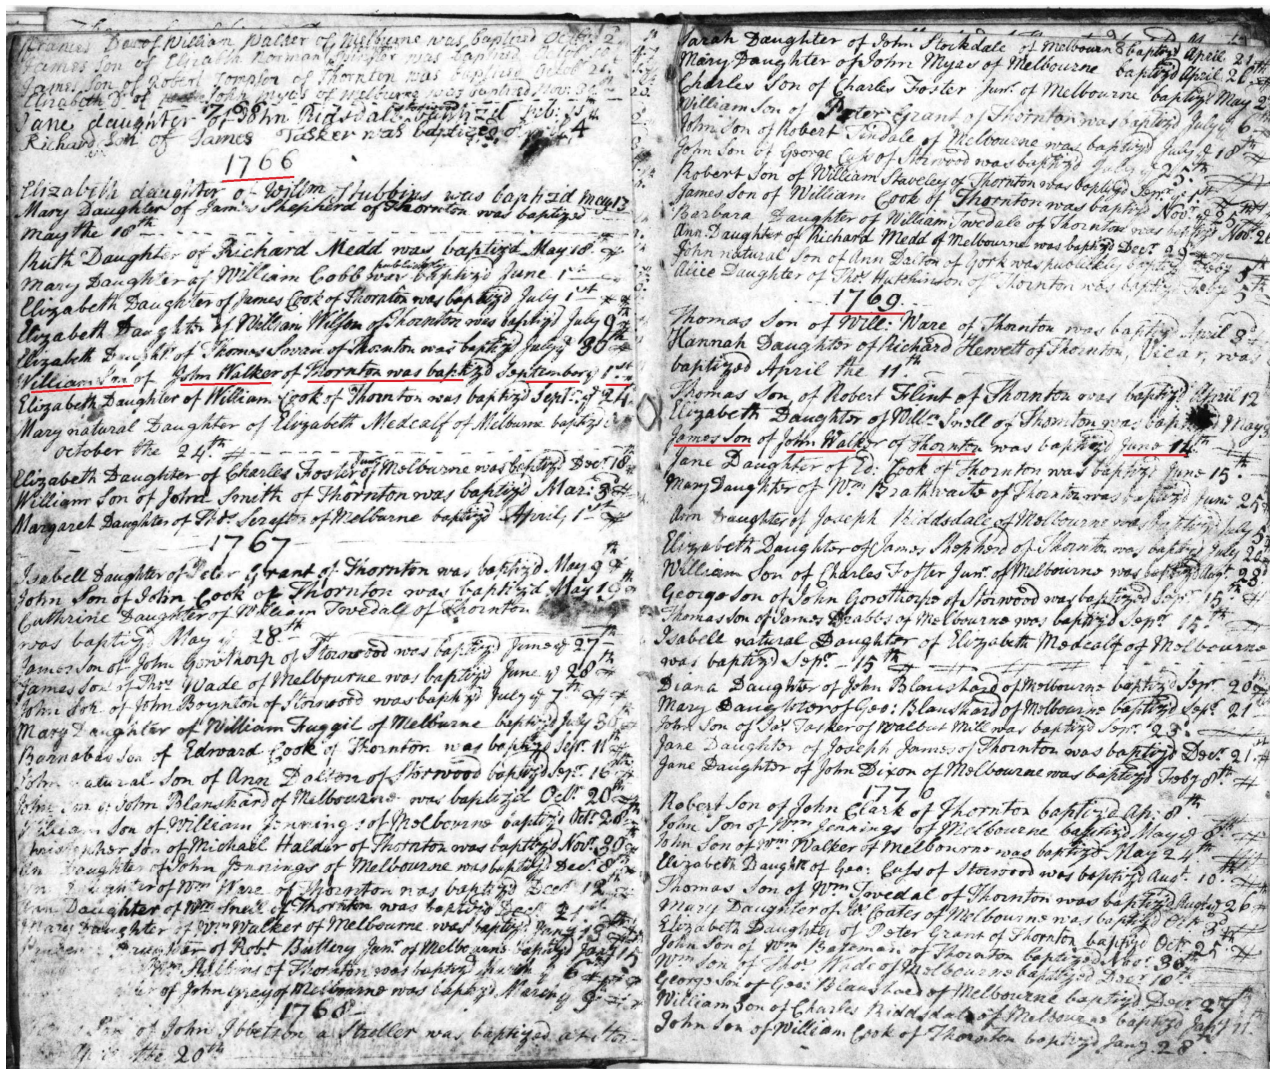 Frances Dau of William Walker of Melburne was baptized Octobr 2
James Son of Elizabeth Norman Spinster was baptized
James Son of Robert Tompson of Thornton was baptized Octobr 26
Elizabeth D. of John Myas of Melburne was baptized Novr 30
Jane daughter of John Ridsdale baptizd Feb: 15th
Richard Son of James Tasker was baptized 4
1766
Elizabeth daughter of Willm Stubbins was baptiz'd may 17
Mary Daughter of James Shepherd of Thornton was baptized
may the 18th
Ruth Daughter of Richard Medd was baptizd May 18th
Mary Daughter of William Cobb was publickly baptizd June 1st
Elizabeth Daughter of James Cook of Thornton was baptizd July 1st
Elizabeth Daughter of William Wilson of Thornton was baptizd July 9th
Elizabeth Daughtr of Thomas Swan of Thornton was baptizd July ye 30th
William Son of John Walker of Thornton was baptizd September ye 1st
Elizabeth Daughter of William Cook of Thornton was baptizd Septr ye 24
Mary natural Daughter of Elizabeth Medcalf of Melburne baptizd
october the 24th
Elizabeth Daughter of Charles Foster Junr of Melbourne was baptizd Decr 18th
William Son of John Smith of Thornton was baptizd Mar: 3d
Margaret Daughter of Thos Scrafton of Melburne baptizd April ye 1st
1767
Isabell Daughter of Peter Grant of Thornton was baptizd May 9th
John Son of John Cook of Thornton was baptizd May 10th
Cathrine Daughter of William Twedall of Thornton
was baptizd May ye 28th
James Son of John Gorwthorp of Storwood was baptizd June ye 27th
James Son of Thos Wade of Melbourne was baptizd June ye 28th
John Son of John Boynton of Storwood was baptizd July ye 7th
Mary Daughter of William Huggil of Melburne baptizd July 30
Barnabas Son of Edward Cook of Thornton was baptizd Sepr 11th
John natural Son of Ann Dalton of Storwood baptizd Sepr 16th
John Son of John Blanshard of Melbourne was baptiz'd Octr 20th
William Son of William Jennings of Melbourne baptizd Octr 28th
Christopher Son of Michael Halder of Thornton was baptizd Novr 30
Ann Daughter of John Jennings of Melbourne was baptizd Decr 8th
Daughter of Wm Ware of Thornton was baptizd Decr 12
Ann Daughter of Wm Snell of Thornton was baptizd Decr 21st
Mary Daughter of Wm Walker of Melbourne was baptizd Jany 13th
Daughter of Robt Battery Junr of Melbourne baptizd Jany 15
Wm of Thornton was baptizd March ye 6
of John Gray of Melbourne was baptizd March ye 9
1768
Son of John Ibbetson a Stroller was baptized at
the 20th
Sarah Daughter of John Stockdale of Melbourne baptizd April 21
Mary Daughter of John Myas of Melbourne baptizd April 26th
Charles Son of Charles Foster Junr of Melbourne baptizd May 2
William Son of Peter Grant of Thornton was baptizd July ye 6th
John Son of Robert Tindale of Melbourne was baptizd July ye 18th
John Son of George Caps of Storwood was baptizd July ye 25th
Robert Son of William Staveley of Thornton was baptizd Sepr 1st
James Son of William Cook of Thornton was baptizd Novr ye 5th
Barbara Daughter of William Twedale of Thornton was baptizd Novr 20
Ann Daughter of Richard Medd of Melbourne was baptizd Decr 28
John natural Son of Ann Dalton of York was publickly baptizd Feby 5th
Alice Daughter of Thos Hutchinson of Thornton was baptizd Feby 5th
1769
Thomas Son of Will: Ware of Thornton was baptizd April 3d
Hannah Daughter of Richard Hewett of Thornton, Vicar, was
baptized April the 11th
Thomas Son of Robert Flint of Thornton was baptizd April 12
Elizabeth Daughter of Willm Snell of Thornton was baptizd May
James Son of John Walker of Thornton was baptizd June 14th
Jane Daughter of Ed: Cook of Thornton was baptizd June 15th
Mary Daughter of Wm Brathwaite of Thornton was baptizd June 25th
Ann Daughter of Joseph Riddsdale of Melbourne was baptizd July 5
Elizabeth Daughter of James Shepherd of Thornton was baptizd July 26th
William Son of Charles Foster Junr of Melbourne was baptizd Augt 28
George Son of John Gorwthorpe of Storwood was baptized Sepr 15th
Thomas Son of James Drabbs of Melbourne was baptizd Sepr 15th
Isabell natural Daughter of Elizabeth Medcalf of Melbourne
was baptizd Sepr 15th
Diana Daughter of John Blanshard of Melbourne baptizd Sepr 20th
Mary Daughter of Geo: Blanshard of Melbourne baptizd Sepr 21st
John Son of Jas Tasker of Walbut Mill was baptizd Sepr 23
Jane Daughter of Joseph James of Thornton was baptizd Decr 21st
Jane Daughter of John Dixon of Melbourne was baptizd Feby 8th
1770
Robert Son of John Clark of Thornton baptizd Ap: 8th
John Son of Wm Jennings of Melbourne baptizd May ye 8th
John Son of Wm Walker of Melbourne was baptizd May 24th
Elizabeth Daughtr of Geo: Caps of Storwood was baptizd Augt 10th
Thomas Son of Wm Twedal of Thornton was baptizd August 26
Mary Daughter of Coates of Melbourne was baptizd Octr 3d
Elizabeth Daughter of Peter Grant of Thornton baptizd Octr 25th
John Son of Wm Bateman of Thornton baptized Novr 30th
Wm Son of Thos Wade of Melbourne baptized Decr 10th
George Son of Geo: Blanshard of Melbourne baptizd Decr 27th
William Son of Charles Riddsdale of Melbourne baptizd Jany 11th
John Son of William Cook of Thornton baptizd Jany 28